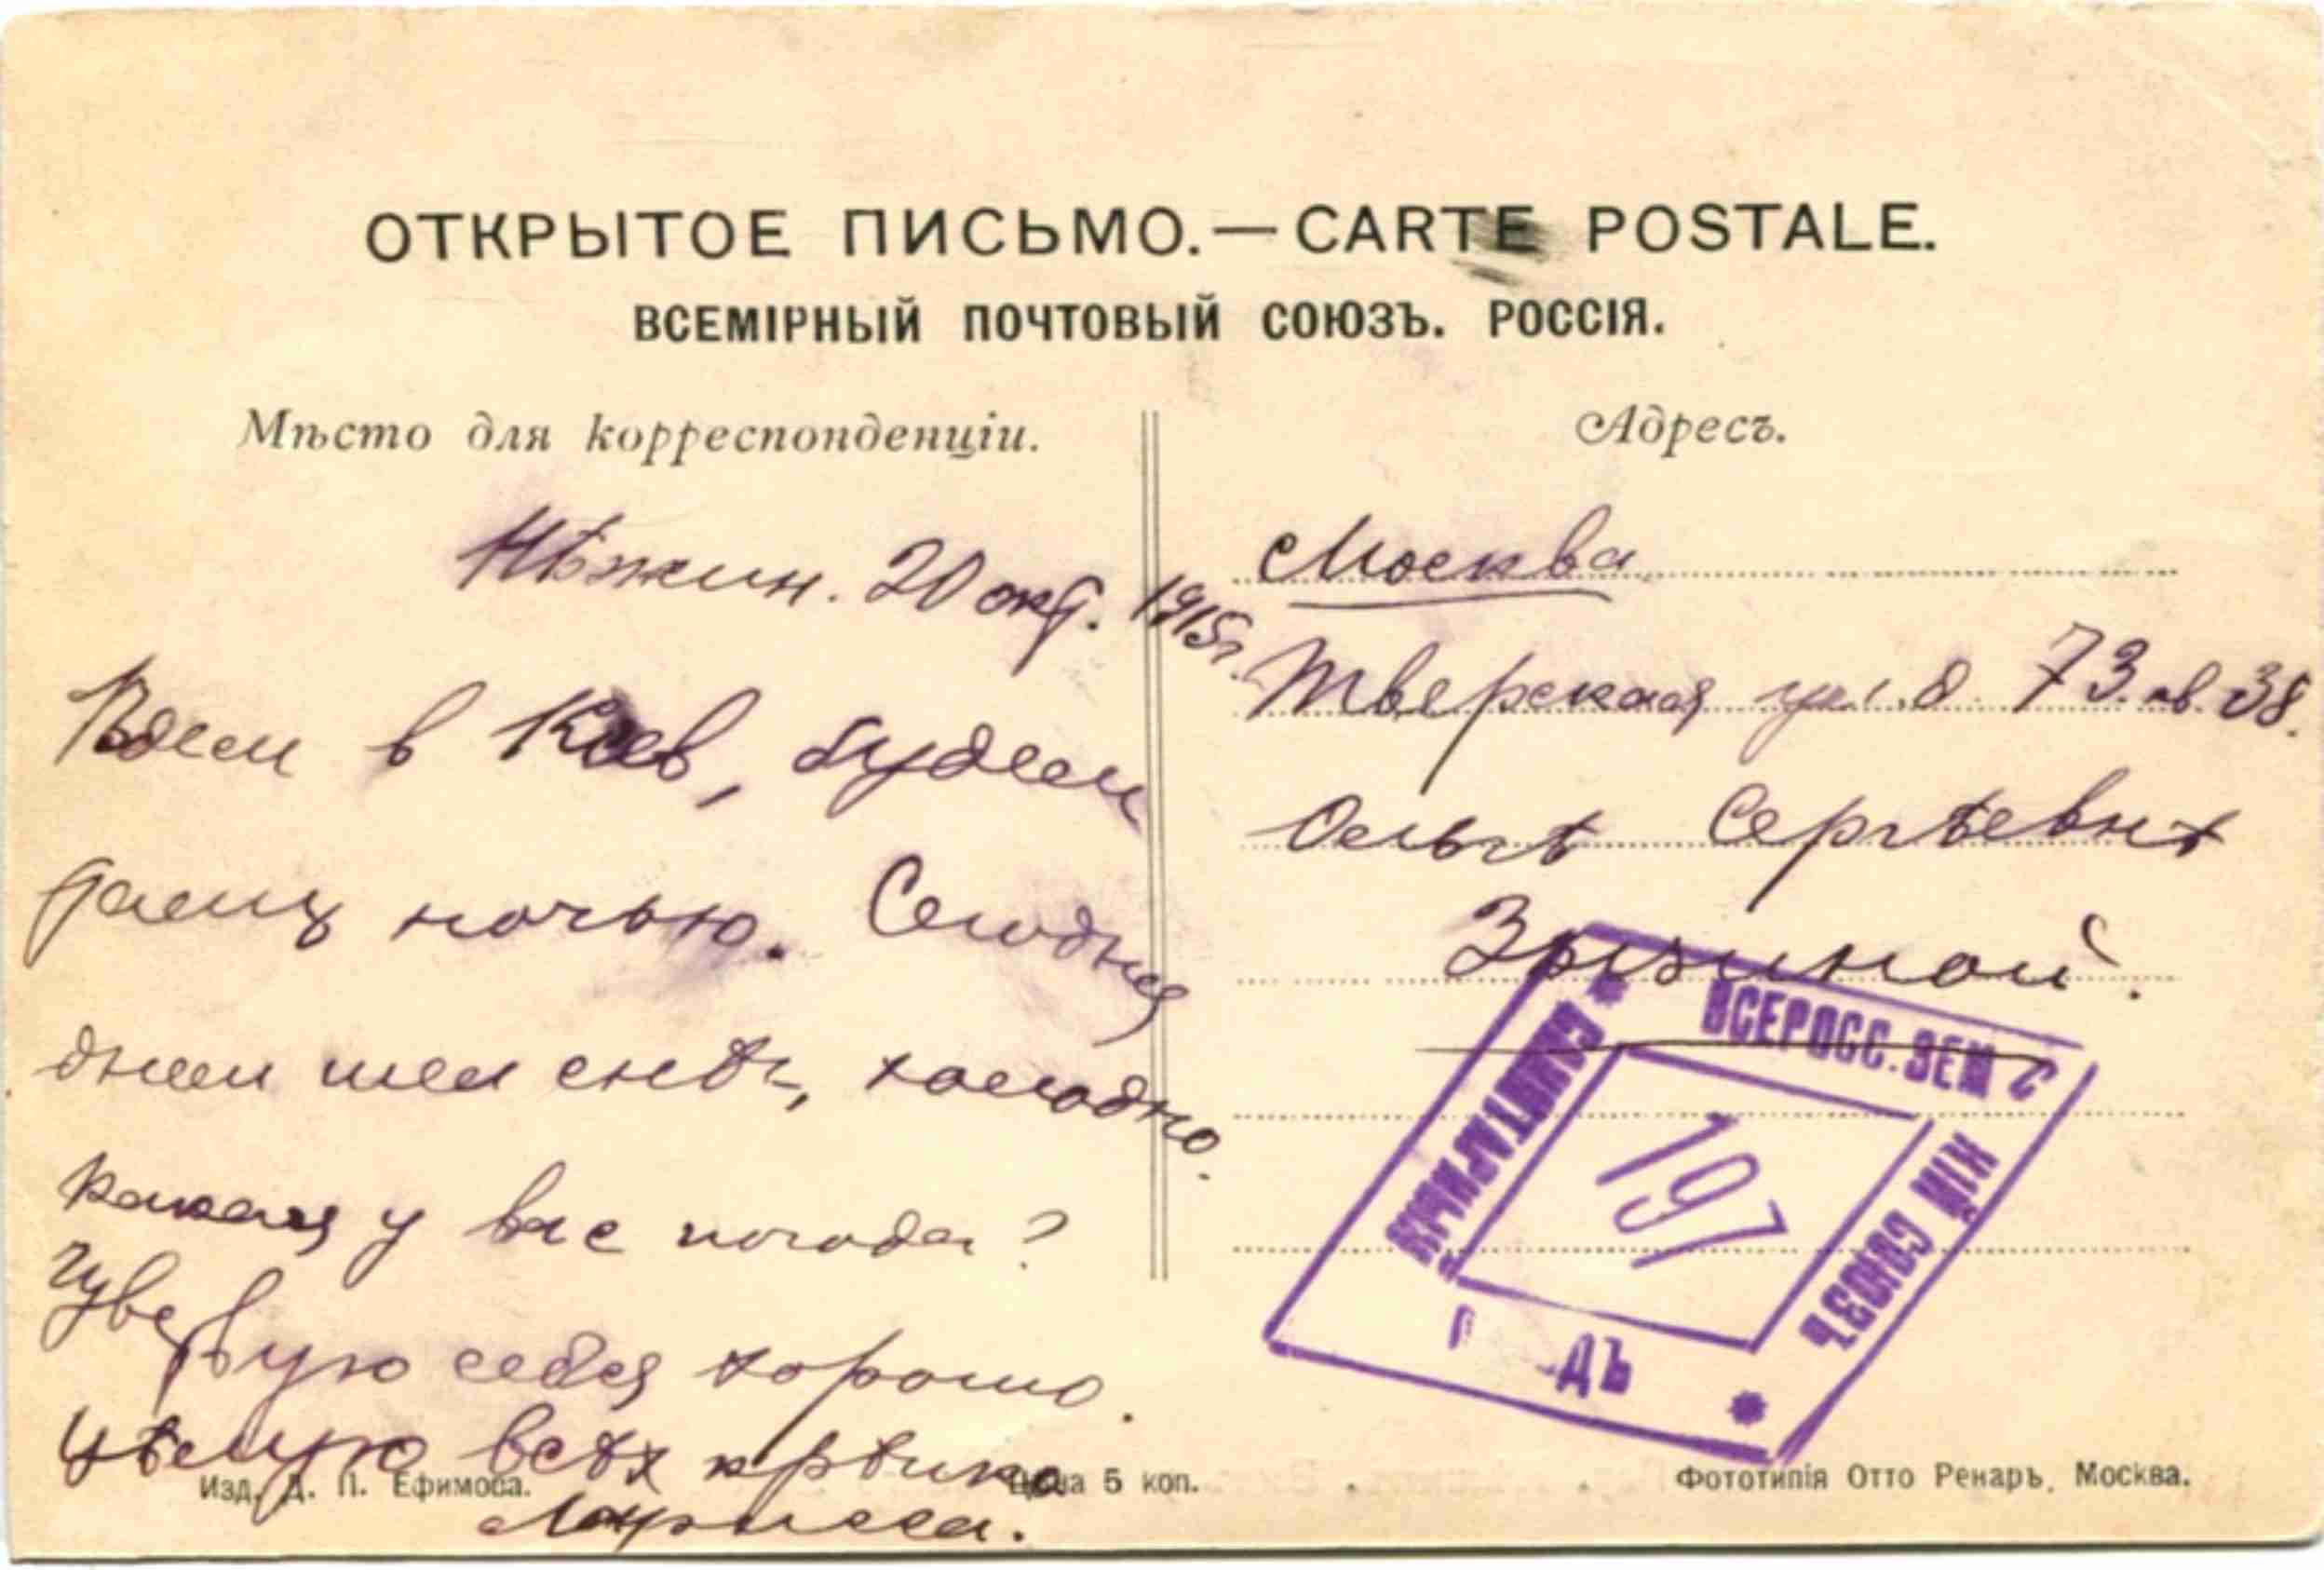 ОТКРЫТОЕ ПИСЬМО. — CARTE POSTALE.
ВСЕМІРНЫЙ ПОЧТОВЫЙ СОЮЗЪ. РОССІЯ.
Мѣсто для корреспонденціи.
Нѣжин. 20 окт. 1915г.
Ѣдем в Киев, будем
там ночью. Сегодня
днем шел снѣг, холодно.
Какая у вас погода?
Чувствую себя хорошо.
Цѣлую всѣх крѣпко
Изд. Д. П. Ефимова.
Цѣна 5 коп.
Адресъ.
Москва
Тверская ул. д. 73. кв. 38.
Ольгѣ Сергѣевнѣ
ВСЕРОСС. ЗЕМ С
КІЙ СОЮЗЪ
ДЪ
САНИТАРНЫЙ
197
Фототипія Отто Ренаръ, Москва.